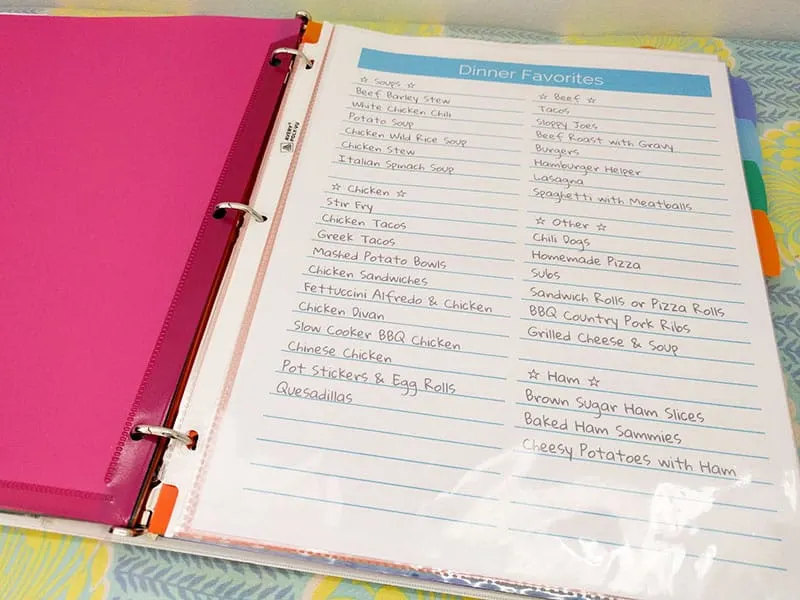 Dinner Favorites
☆ Soups ☆
Beef Barley Stew
White Chicken Chili
Potato Soup
Chicken Wild Rice Soup
Chicken Stew
Italian Spinach Soup
☆ Chicken ☆
Stir Fry
Chicken Tacos
Greek Tacos
Mashed Potato Bowls
Chicken Sandwiches
Fettuccini Alfredo & Chicken
Chicken Divan
Slow Cooker BBQ Chicken
Chinese Chicken
Pot Stickers & Egg Rolls
Quesadillas
☆ Beef ☆
Tacos
Sloppy Joes
Beef Roast with Gravy
Burgers
Hamburger Helper
Lasagna
Spaghetti with Meatballs
☆ Other ☆
Chili Dogs
Homemade Pizza
Subs
Sandwich Rolls or Pizza Rolls
BBQ Country Pork Ribs
Grilled Cheese & Soup
☆ Ham ☆
Brown Sugar Ham Slices
Baked Ham Sammies
Cheesy Potatoes with Ham
AVERY